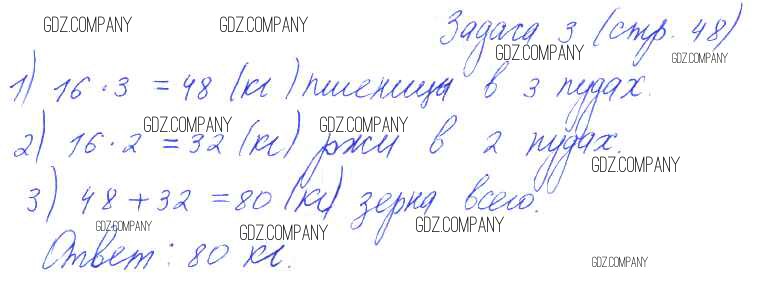 GDZ.COMPANY GDZ.COMPANY Задача 3 (стр. 48)
GDZ.COMPANY GDZ.COMPANY
1) 16 · 3 = 48 (кг) пшеницы в 3 пудах.
GDZ.COMPANY GDZ.COMPANY
2) 16 · 2 = 32 (кг) ржи в 2 пудах.
GDZ.COMPANY
3) 48 + 32 = 80 (кг) зерна всего.
GDZ.COMPANY GDZ.COMPANY GDZ.COMPANY
Ответ: 80 кг.
GDZ.COMPANY